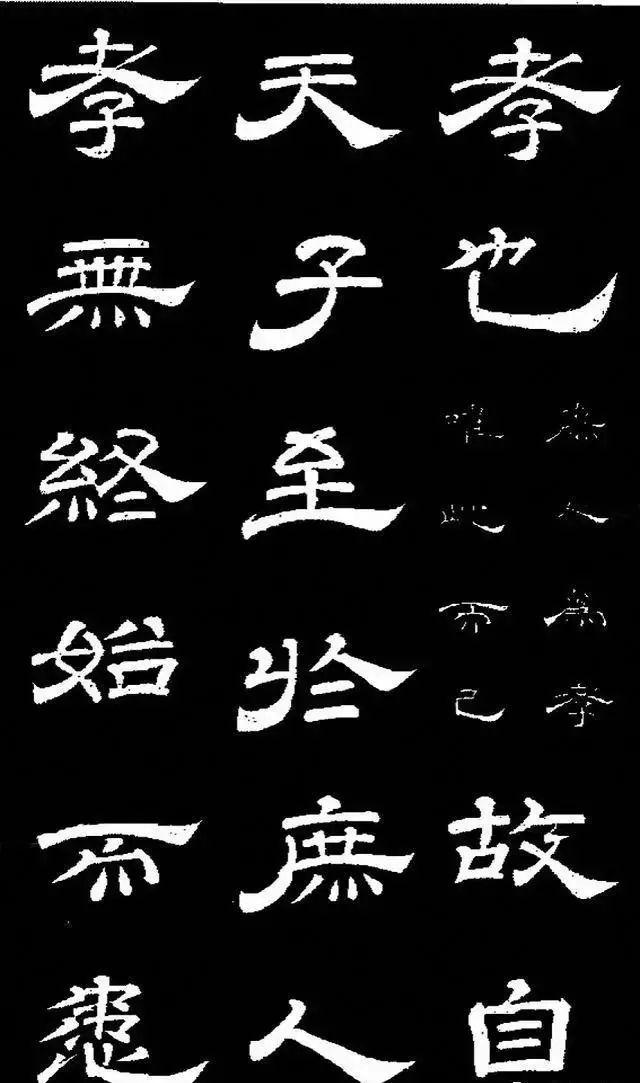 孝也
庶人為孝
唯此而已
故自
天子至於庶人
孝無終始而患